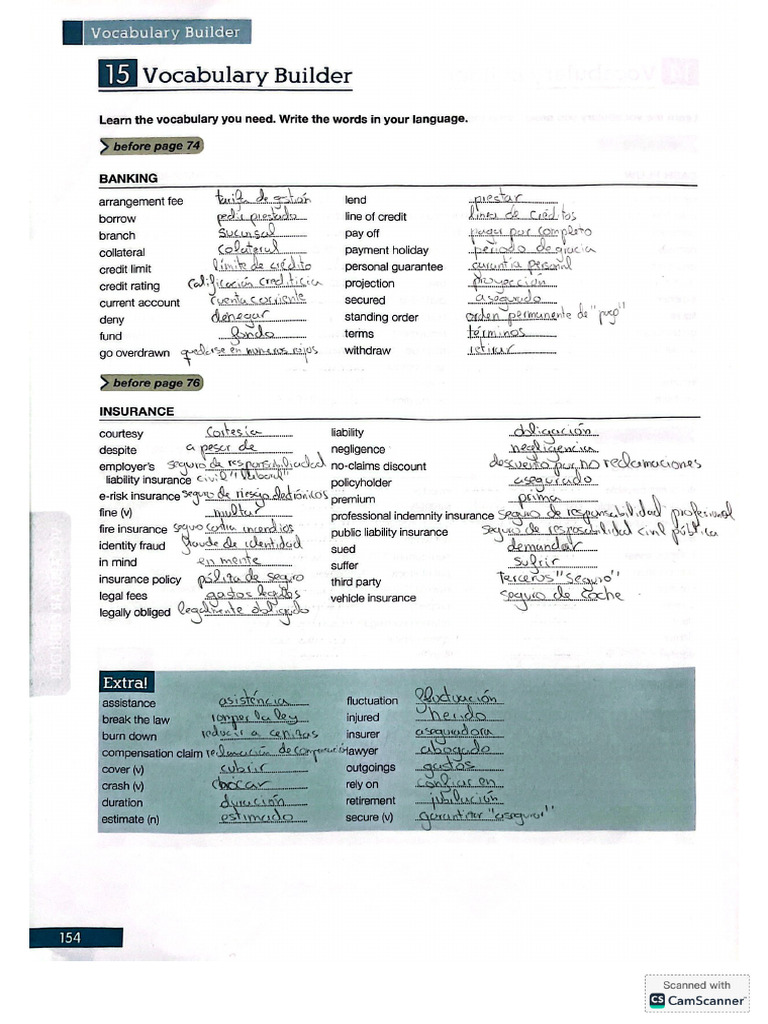 Vocabulary Builder
15 Vocabulary Builder
Learn the vocabulary you need. Write the words in your language.
before page 74
BANKING
arrangement fee tarifa de gestión
borrow pedir prestado
branch sucursal
collateral colateral
credit limit límite de crédito
credit rating calificación crediticia
current account cuenta corriente
deny denegar
fund fondo
go overdrawn quedarse en números rojos
lend prestar
line of credit línea de créditos
pay off pagar por completo
payment holiday período de gracia
personal guarantee garantía personal
projection proyección
secured asegurado
standing order orden permanente de "pago"
terms términos
withdraw retirar
before page 76
INSURANCE
courtesy cortesía
despite a pesar de
employer's seguro de responsabilidad
liability insurance civil "laboral"
e-risk insurance seguro de riesgo electrónicos
fine (v) multar
fire insurance seguro contra incendios
identity fraud fraude de identidad
in mind en mente
insurance policy póliza de seguro
legal fees gastos legales
legally obliged legalmente obligado
liability obligación
negligence negligencia
no-claims discount descuento por no reclamaciones
policyholder asegurado
premium prima
professional indemnity insurance seguro de responsabilidad profesional
public liability insurance seguro de resposabilidad civil pública
sued demandar
suffer sufrir
third party terceros "seguro"
vehicle insurance seguro de coche
Extra!
assistance asisténcia
break the law romper la ley
burn down reducir a cenizas
compensation claim reclamación de compensación
cover (v) cubrir
crash (v) chocar
duration duración
estimate (n) estimado
fluctuation fluctuación
injured herido
insurer aseguradora
lawyer abogado
outgoings gastos
rely on confiar en
retirement jubilación
secure (v) garantizar "asegurar"
154
Scanned with
CS CamScanner